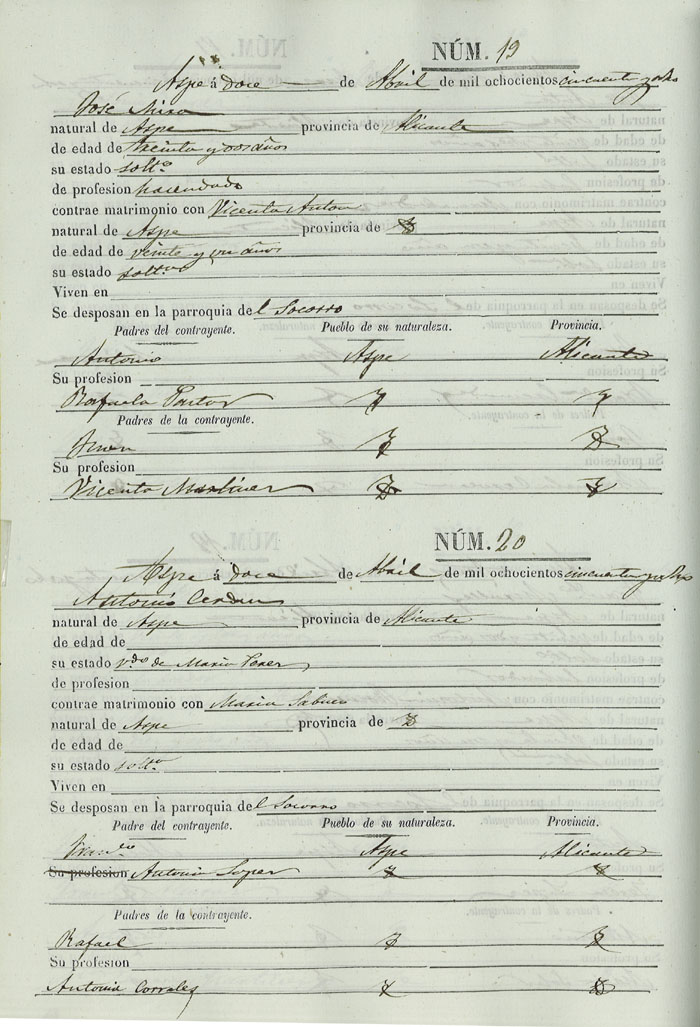 NÚM. 19
Aspe á doce de Abril de mil ochocientos cincuenta y ocho
José Mira
natural de Aspe provincia de Alicante
de edad de treinta y dos años
su estado solt.º
de profesion hacendado
contrae matrimonio con Vicenta Anton
natural de Aspe provincia de
de edad de veinte y un años
su estado solt.ra
Viven en
Se desposan en la parroquia del Socorro
Padres del contrayente. Pueblo de su naturaleza. Provincia.
Antonio Aspe Alicante
Su profesion
Rafaela Pastor
Padres de la contrayente.
Juan
Su profesion
Vicenta Martinez
NÚM. 20
Aspe á doce de Abril de mil ochocientos cincuenta y ocho
Antonio Cerdan
natural de Aspe provincia de Alicante
de edad de
su estado v.do de Maria
de profesion
contrae matrimonio con Maria Sabuco
natural de Aspe provincia de
de edad de
su estado solt.ra
Viven en
Se desposan en la parroquia del Socorro
Padre del contrayente. Pueblo de su naturaleza. Provincia.
Fran.co Aspe Alicante
Su profesion Antonia
Padres de la contrayente.
Rafael
Su profesion
Antonia Corrales